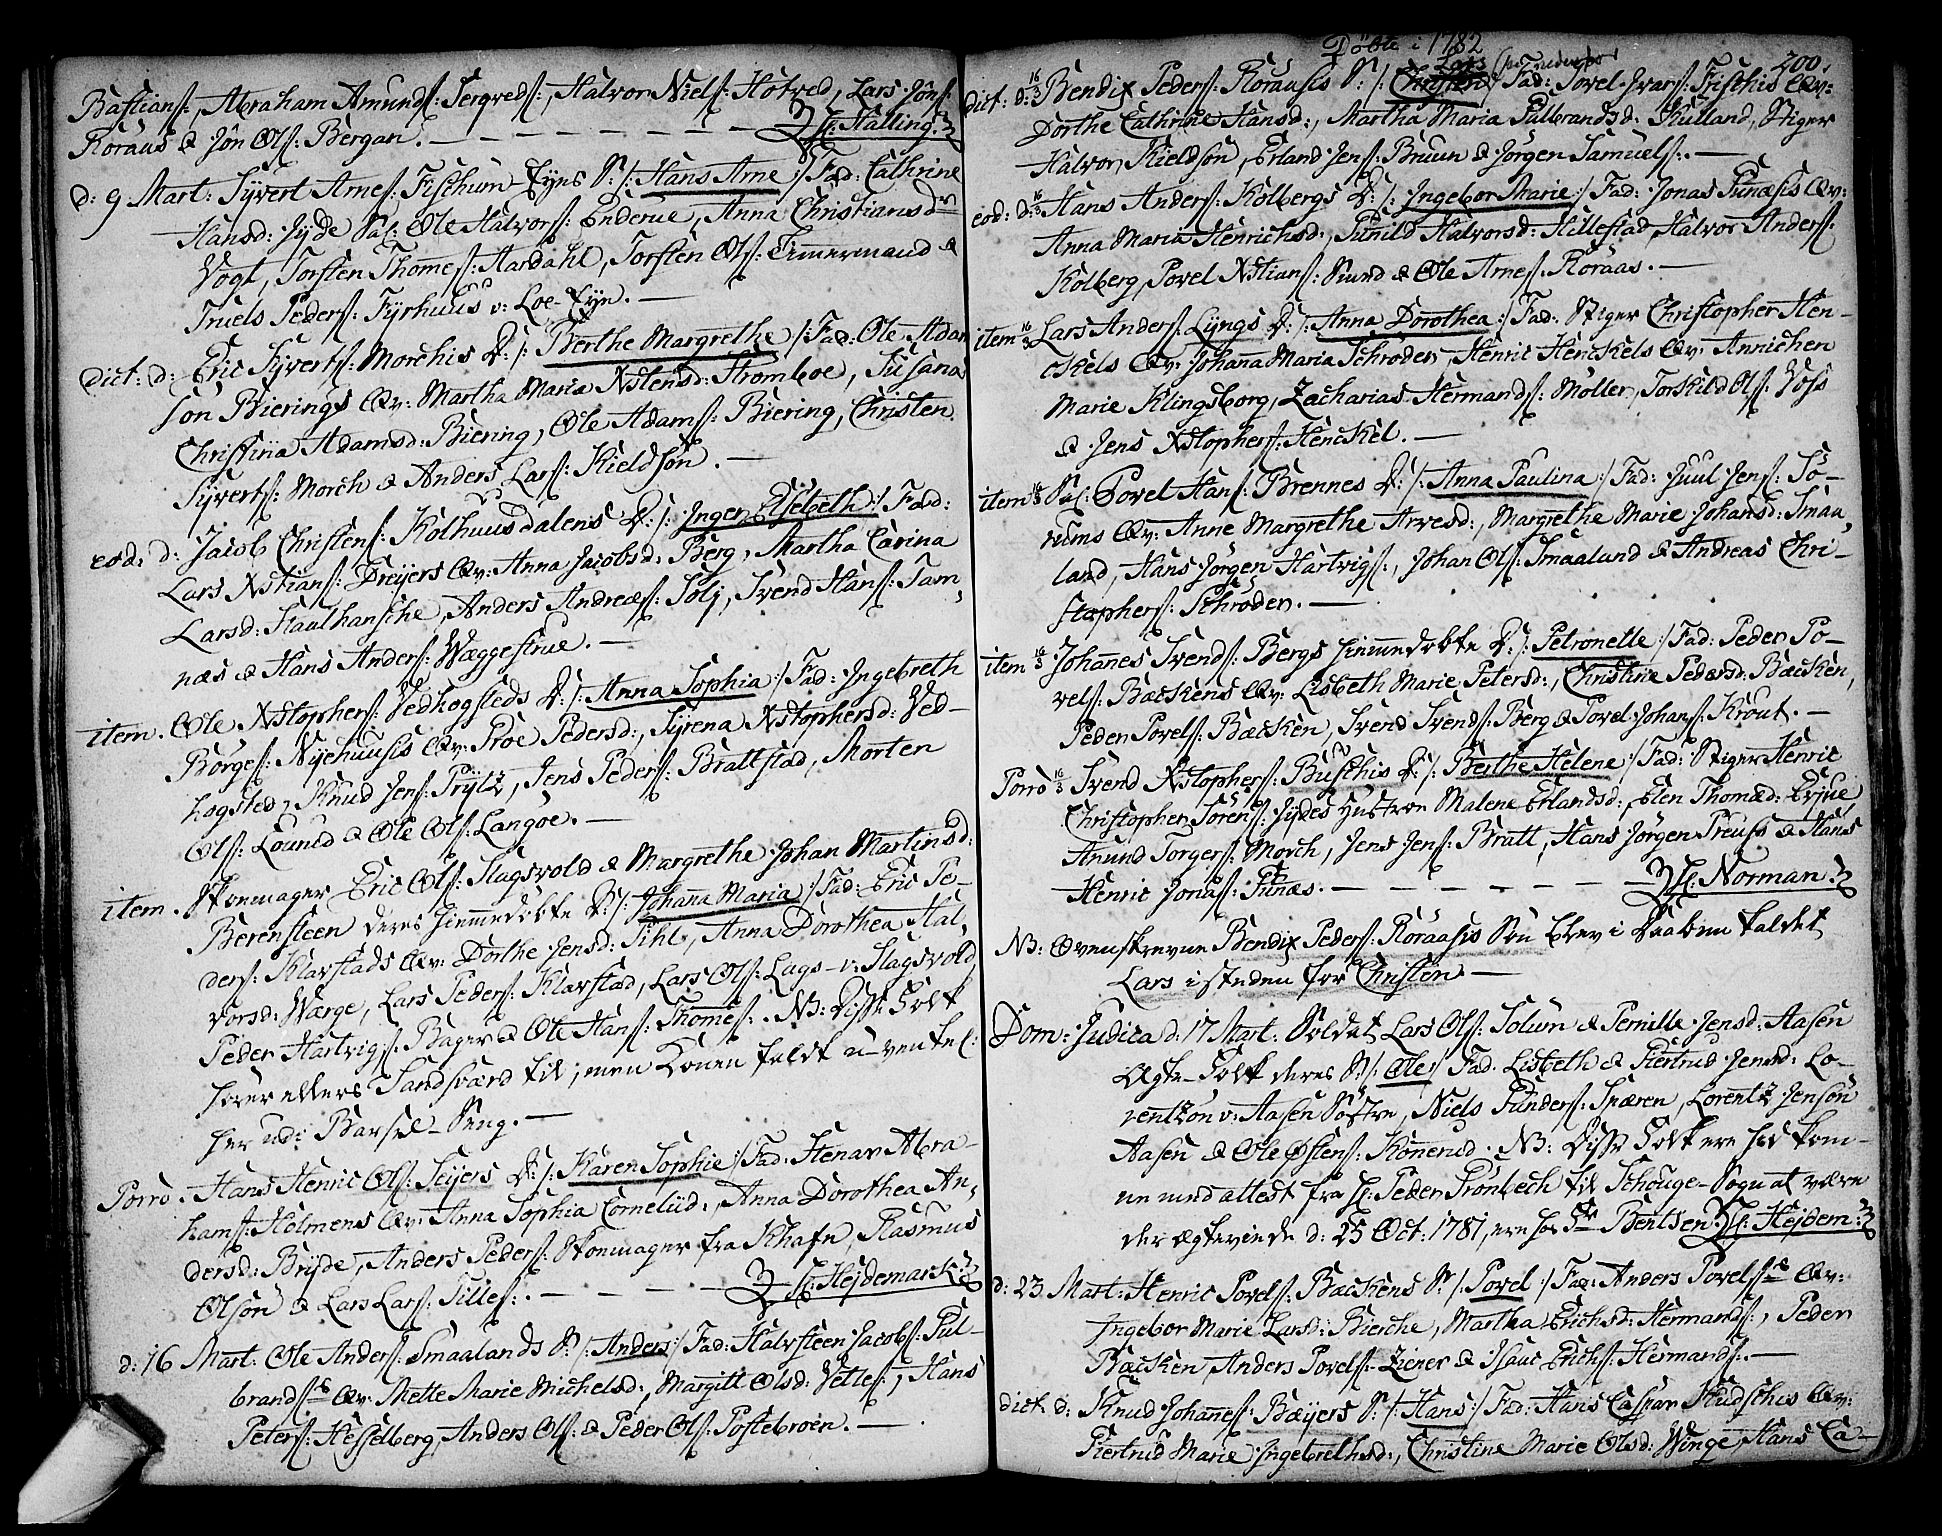 Bastians:, Abraham Amunds: Tergveds:, Halvor Niels: Hotved, Lars Jons:
Roraas & Jon Ols: Bergan. — Hr: Halling.
d: 9 Mart: Syvert Arnes: Fischum-Eyns S: /: Hans Arne :/ Fad: Cathrine
Hansd: Jyde Sal: Ole Halvors: Enderue, Anna Christiansdr
Vogt, Torsten Thomes: Aardahl, Torsten Ols: Timmermand &
Truels Peders: Fyrhuus v: Loe-Eyn. —
dict: d: Eric Syverts: Morchis D: /: Berthe Margrethe :/ Fad: Ole Adam
son Bierings Qv: Martha Maria Xstensd: Stromboe, Susana
Christina Adamsd: Biering, Ole Adams: Biering, Christen
Syverts: Morch & Anders Lars: Kieldson. —
eod: d: Jacob Christens: Kolhuusdalens D: /: Inger Elsebeth :/ Fad:
Lars Xstians: Dreyers Qv: Anna Jacobsd: Berg, Martha Carina
Larsd: Skaalhansche, Anders Andreas: Solj, Svend Hans: Sam,
næs & Hans Anders: Wæggestrue. —
item. Ole Xstophers: Vedhogsteds D: /: Anna Sophia :/ Fad: Ingebreth
Börges: Nyehuusis Qv: Proe Pedersd:, Syrena Xstophersd: Ved-
hogsted, Knud Jens: Prytz, Jens Peders: Brattstad, Morten
Ols: Lound & Ole Ols: Langöe. —
item. Skomager Eric Ols: Slagsvold & Margrethe Johan Martinsd:
Berensteen deres hiemmedøbte D: /: Johana Maria :/ Fad: Eric Pe-
ders: Klavstads Qv: Dorthe Jensd: Pihl, Anna Dorothea Hal,
vorsd: Wærge, Lars Peders: Klavstad, Lars Ols: Lags- v: Slagsvold
Peder Hartvigs: Bager & Ole Hans: Thomes:. NB: Disse Folk
hører ellers Sandsværd til; men Konen faldt u-ventel:
her udi Barsel-Seng. —
Porro. Hans Henric Ols: Seyers D: /: Karen Sophie :/ Fad: Stenar Abra-
hams: Holmens Qv: Anna Sophia Cornelüd:, Anna Dorothea An,
dersd: Bryde, Anders Peders: Skomager fra Khafn, Rasmus
Olsön & Lars Lars: Tilles:. — Hr: Hejdemark.
d: 16 Mart: Ole Anders: Smaalands S: /: Anders :/ Fad: Halvsteen Jacobs: Gul-
brands: Qv: Mette Marie Michelsd:, Margitt Olsd: Vetles:, Hans
Peters: Hesselberg, Anders Ols: & Peder Ols: Postebroen. —
Döbte i 1782
200.
Lars
dict: d: 16/3 Bendix Peders: Roraasis S: /: Christen :/ Fad: Povel Ivars: Fischis Qv:
Dorthe Cathrine Hansd:, Martha Maria Gulbrandsd: Rulland, Stiger
Halvor Kieldsön, Erland Jens: Bruun & Jörgen Samuels:. —
eod: d: 16/3 Hans Anders: Kolbergs D: /: Ingebor Marie :/ Fad: Jonas Funæsis Qv:
Anna Maria Henrichsd:, Gunild Halvorsd: Hillestad, Halvor Anders:
Kolberg, Povel Xstians: Smed & Ole Arnes: Roraas. —
item 16/3 Lars Anders: Lyngs D: /: Anna Dorothea :/ Fad: Stiger Christopher Hen-
ckels Qv: Johana Maria Schroder, Henric Henckels Qv: Annichen
Marie Klingsborg, Zacharias Hermands: Möller, Torskild Ols: Voss
& Jens Xstophers: Henckel. —
item 16/3 Sal: Povel Hans: Brennes D: /: Anna Paulina :/ Fad: Juul Jens: So-
rums Qv: Anne Margrethe Arvesd:, Margrethe Marie Johansd: Smaa,
land, Hans Jörgen Hartvigs:, Johan Ols: Smaaland & Andreas Chri-
stophers: Schroder. —
item 16/3 Johanes Svends: Bergs hiemmedøbte D: /: Petronelle :/ Fad: Peder Po-
vels: Backens Qv: Lisbeth Marie Petersd:, Christine Pedersd: Backen,
Peder Povels: Backen, Svend Svends: Berg & Povel Johans: Krout. —
Porro 16/3 Svend Xstophers: Buschis D: /: Berthe Helene :/ Fad: Stiger Henric
Christopher Sörens: Jydes Hustroe Malene Erlandsd:, Elen Thomæd: Evjue
Anund Torgers: Morch, Jens Jens: Bratt, Hans Jörgen Preuss & Hans
Henric Jonas: Funæs. — Hr: Norman.
NB: Ovenskrevne Bendix Peders: Roraasis Sön blev i Daaben kaldet
Lars isteden for Christen —
Dom: Judica d: 17 Mart: Soldat Lars Ols: Solum & Pernille Jensd: Aasen
Ægte-Folk deres S: /: Ole :/ Fad: Lisbeth & Giertrud Jensd: Lo-
rentzon v: Aasen Söstre, Niels Gunders: Spæren, Lorentz Jensön
Aasen & Ole Østens: Konerud. NB: Disse Folk ere hid kom-
ne med attest fra Hr: Peder Grönbech til Schouge-Sogn at være
der ægteviede d: 25 Oct: 1781, ere hos Sr Bentsen. Hr: Hejdem:
d: 23 Mart: Henric Povels: Backens S: /: Povel :/ Fad: Anders Povels: Qv:
Ingebor Marie Larsd: Bierche, Martha Erichsd: Hermands:, Peder
Backen, Anders Povels: Ziener & Isaac Erichs: Hermands:. —
dict: d: Knud Johanes: Bæyers S: /: Hans :/ Fad: Hans Caspar Hudschis Qv:
Giertrud Marie Ingebrethsd:, Christine Marie Olsd: Winge, Hans Ca-